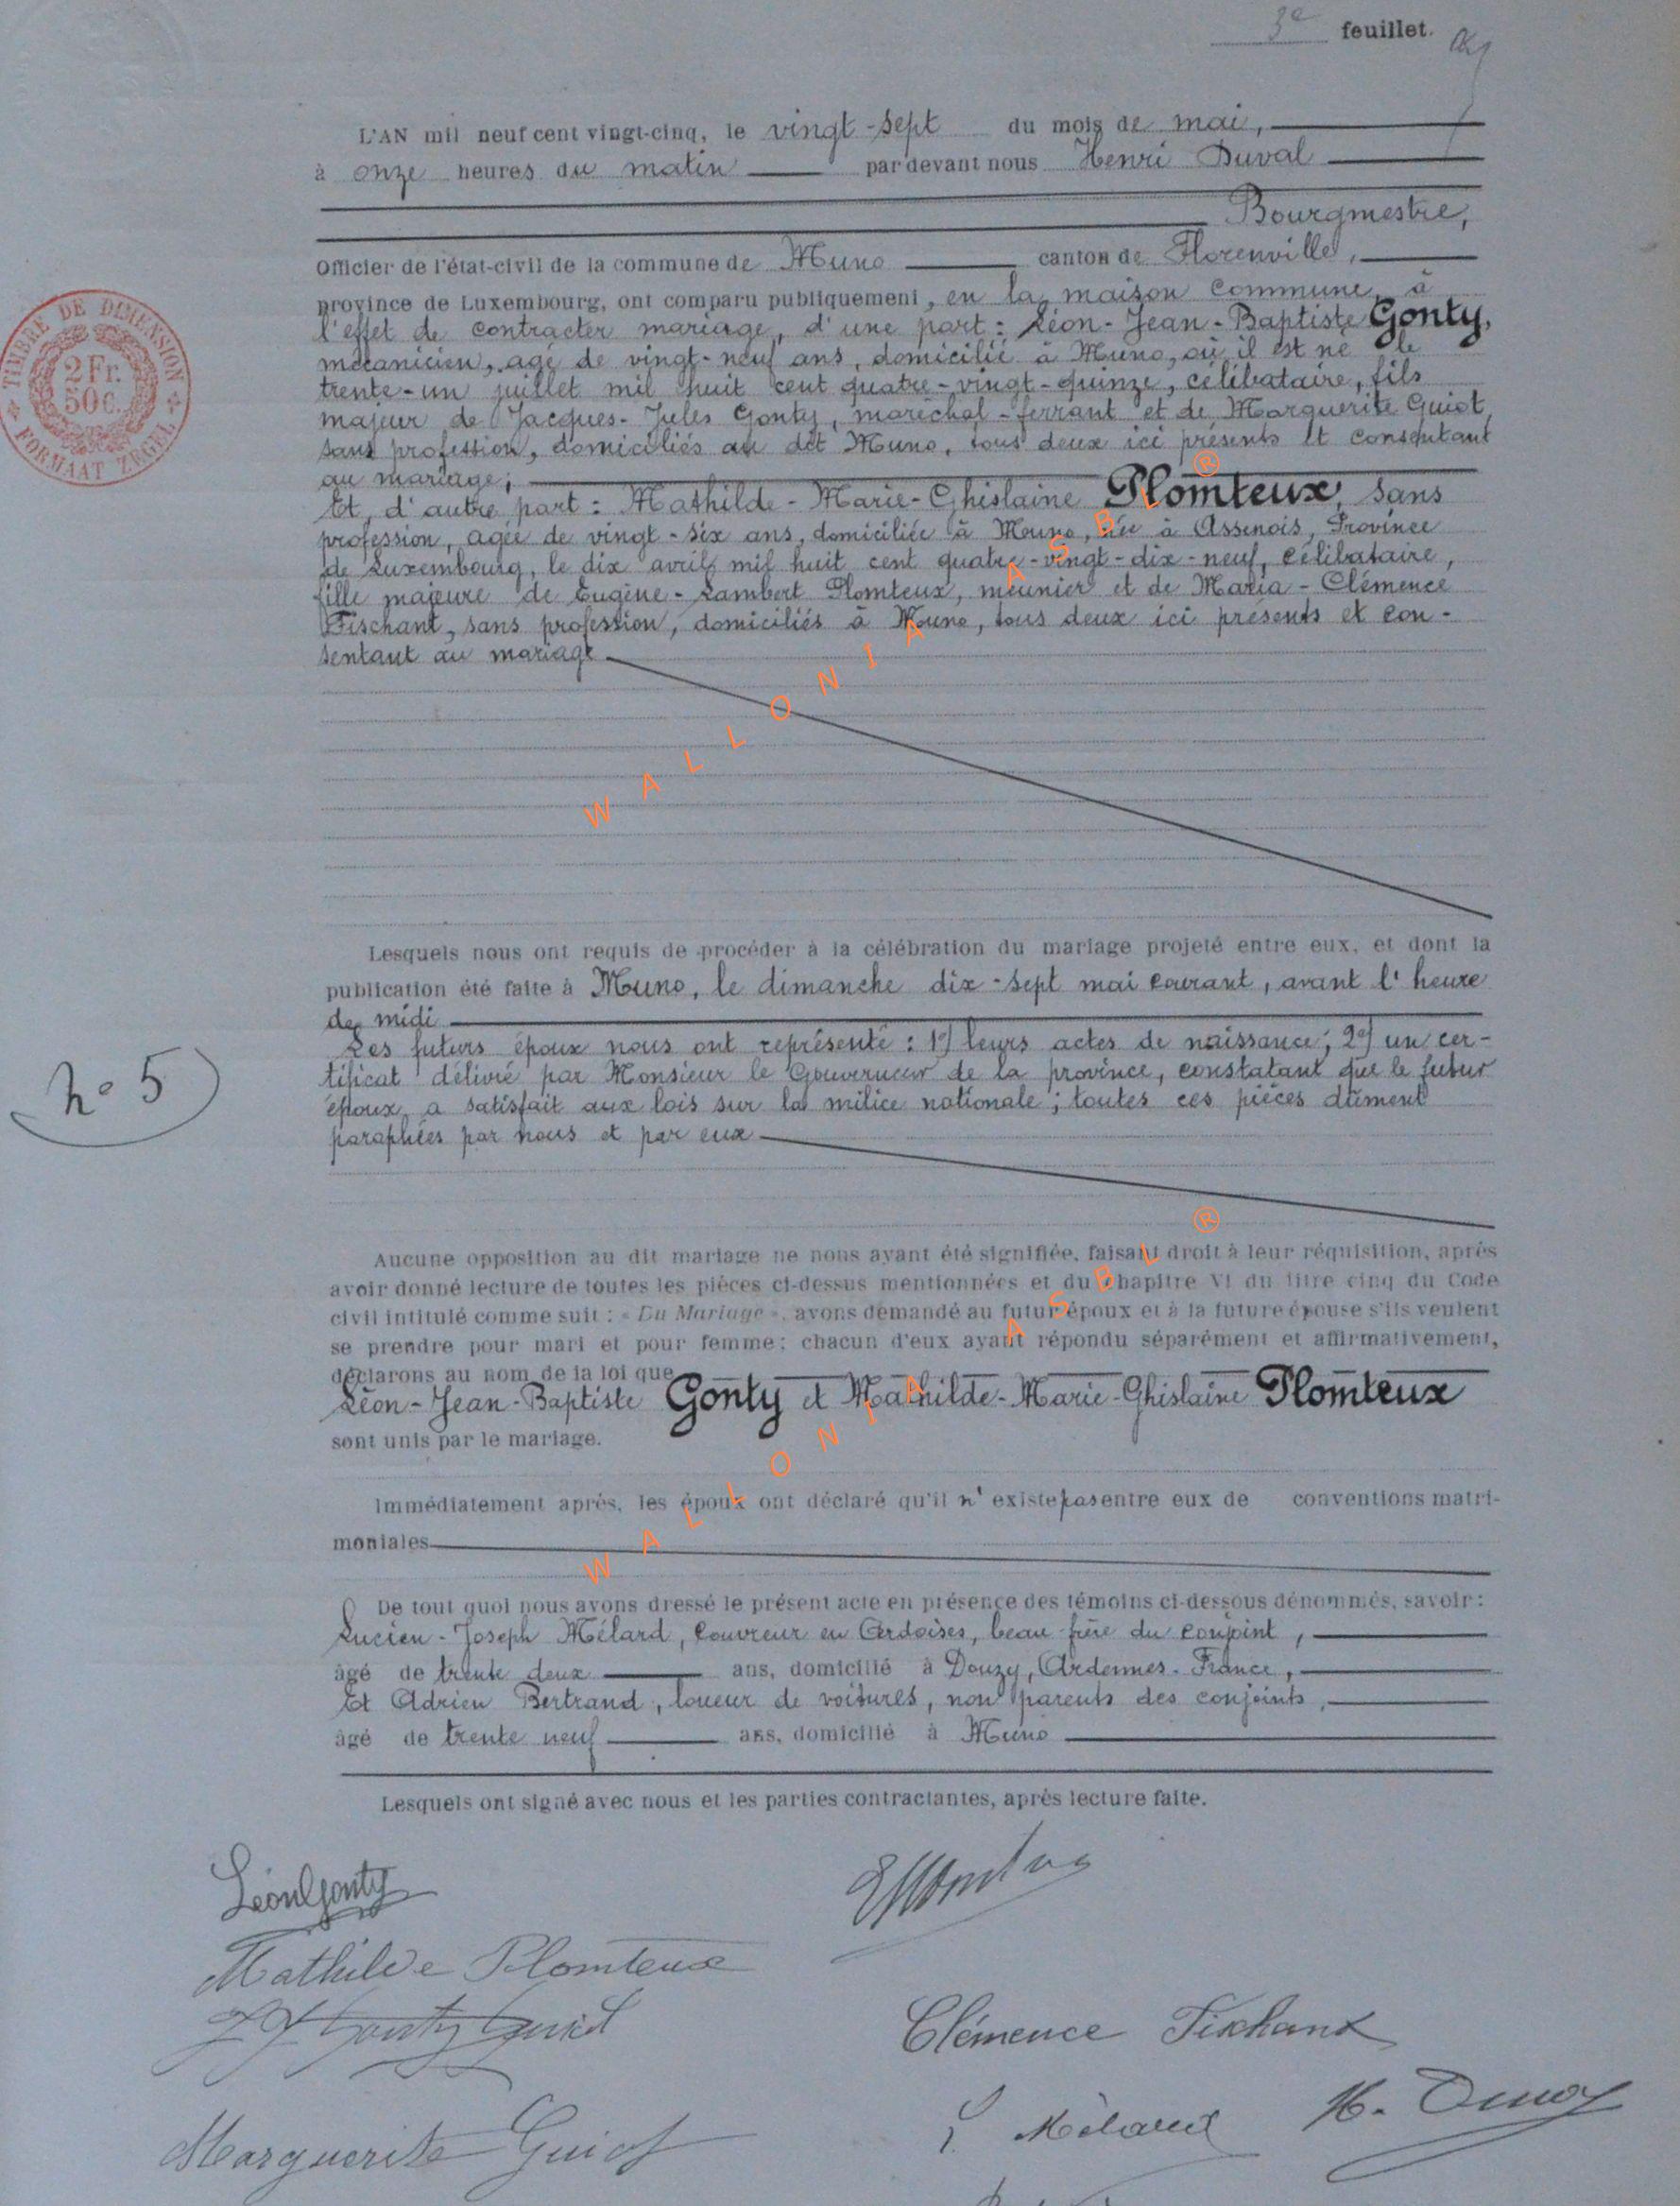 3e feuillet.
L'AN mil neuf cent vingt-cinq, le vingt-sept du mois de mai,
à onze heures du matin par devant nous Henri Duval
Bourgmestre,
Officier de l'état-civil de la commune de Muno canton de Florenville,
province de Luxembourg, ont comparu publiquement, en la maison commune, à
l'effet de contracter mariage, d'une part : Léon-Jean-Baptiste Gonty,
mécanicien, agé de vingt-neuf ans, domicilié à Muno, où il est né le
trente-un juillet mil huit cent quatre-vingt-quinze, célibataire, fils
majeur de Jacques-Jules Gonty, maréchal-ferrant et de Marguerite Guiot,
sans profession, domiciliés au dit Muno, tous deux ici présents et consentant
au mariage ;
Et, d'autre part : Mathilde-Marie-Ghislaine Plomteux, sans
profession, agée de vingt-six ans, domiciliée à Muno, née à Assenois, Province
de Luxembourg, le dix avril mil huit cent quatre-vingt-dix-neuf, célibataire,
fille majeure de Eugène-Lambert Plomteux, meunier et de Maria-Clémence
Fischant, sans profession, domiciliés à Muno, tous deux ici présents et con-
sentant au mariage
Lesquels nous ont requis de procéder à la célébration du mariage projeté entre eux, et dont la
publication été faite à Muno, le dimanche dix-sept mai courant, avant l'heure
de midi
Les futurs époux nous ont représenté : 1o) leurs actes de naissance ; 2o) un cer-
tificat délivré par Monsieur le Gouverneur de la province, constatant que le futur
époux a satisfait aux lois sur la milice nationale ; toutes ces pièces dûment
paraphées par nous et par eux
no 5
Aucune opposition au dit mariage ne nous ayant été signifiée, faisant droit à leur réquisition, après
avoir donné lecture de toutes les pièces ci-dessus mentionnées et du chapitre VI du titre cinq du Code
civil intitulé comme suit : « Du Mariage », avons demandé au futur époux et à la future épouse s'ils veulent
se prendre pour mari et pour femme ; chacun d'eux ayant répondu séparément et affirmativement,
déclarons au nom de la loi que
Léon-Jean-Baptiste Gonty et Mathilde-Marie-Ghislaine Plomteux
sont unis par le mariage.
Immédiatement après, les époux ont déclaré qu'il n'existe pas entre eux de conventions matri-
moniales
De tout quoi nous avons dressé le présent acte en présence des témoins ci-dessous dénommés, savoir :
Lucien-Joseph Mélard, couvreur en Ardoises, beau-frère du conjoint,
âgé de trente deux ans, domicilié à Douzy, Ardennes-France,
Et Adrien Bertrand, loueur de voitures, non parents des conjoints,
âgé de trente neuf ans, domicilié à Muno
Lesquels ont signé avec nous et les parties contractantes, après lecture faite.
Léon Gonty
Mathilde Plomteux
Gonty Guiot
Clémence Fischant
Marguerite Guiot
L. Mélard
TIMBRE DE DIMENSION
2 Fr.
50 c.
FORMAAT ZEGEL
WALLONIA ASBL ®
WALLONIA ASBL ®